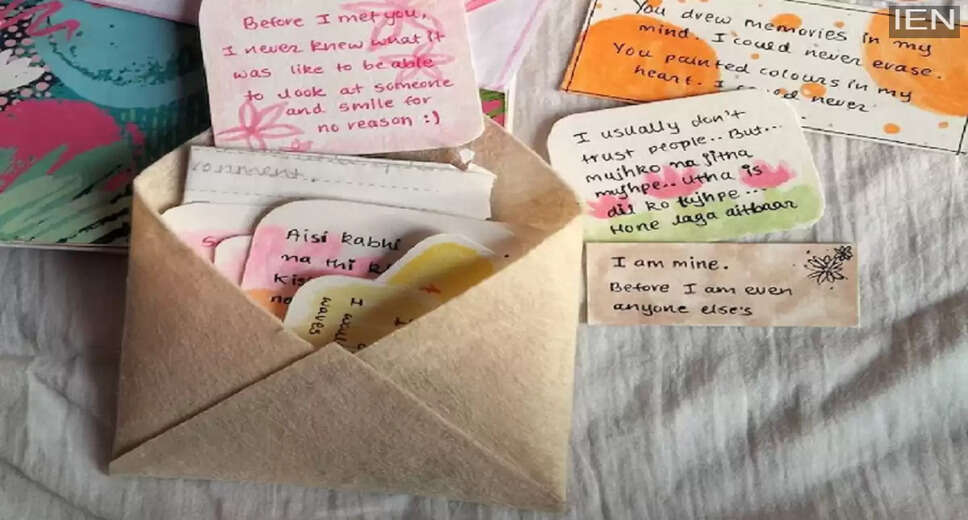 IEN
Before I met you,
I never knew what it
was like to be able
to look at someone
and smile for
no reason :)
You drew memories in my
mind. I could never erase.
You painted colours in my
heart. I
never
I usually don't
trust people.. But...
mujhko na jitna
mujhpe.. utna is
dil ko tujhpe...
Hone laga aitbaar
I am mine.
Before I am even
anyone else's
Aisi kabhi
na thi
Kis
no
I
waves